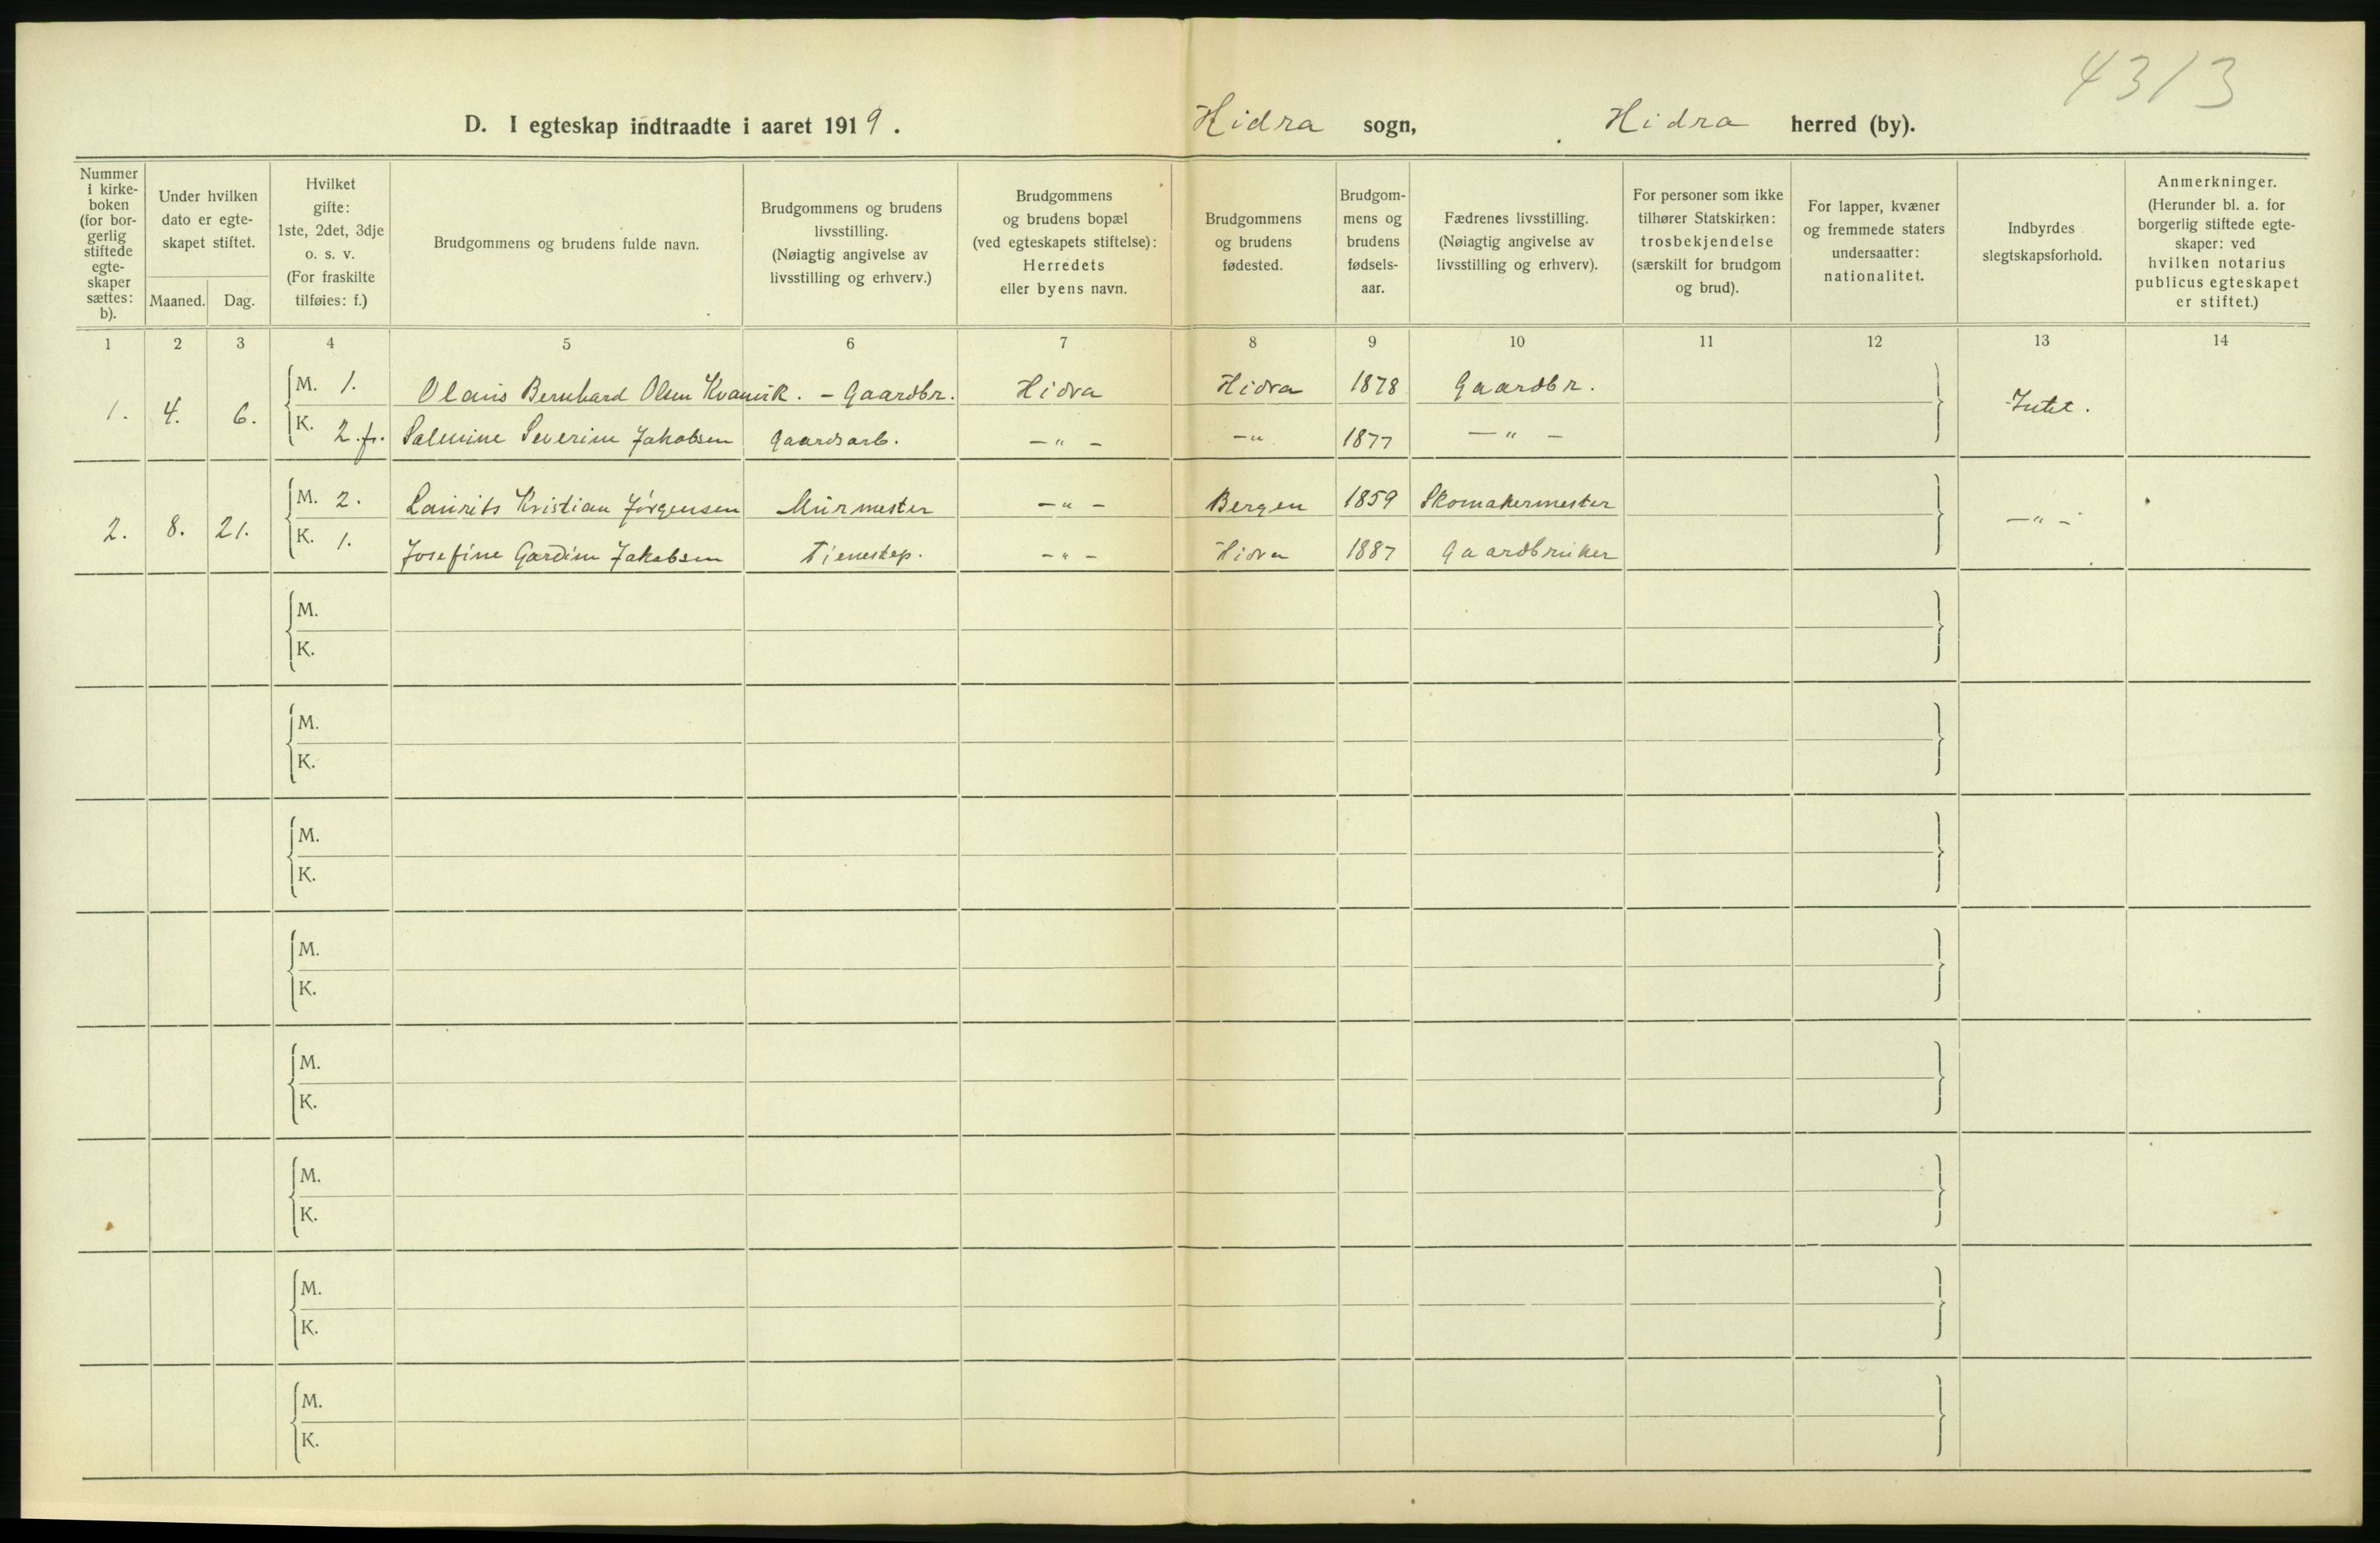 4313
D. I egteskap indtraadte i aaret 1919. Hidra sogn, Hidra herred (by).
Nummer i kirke-boken (for bor-gerlig stiftede egte-skaper sættes: b).
Under hvilken dato er egte-skapet stiftet.
Maaned. Dag.
Hvilket gifte: 1ste, 2det, 3dje o. s. v. (For fraskilte tilføies: f.)
Brudgommens og brudens fulde navn.
Brudgommens og brudens livsstilling. (Nøiagtig angivelse av livsstilling og erhverv.)
Brudgommens og brudens bopæl (ved egteskapets stiftelse): Herredets eller byens navn.
Brudgommens og brudens fødested.
Brudgom-mens og brudens fødsels-aar.
Fædrenes livsstilling. (Nøiagtig angivelse av livsstilling og erhverv).
For personer som ikke tilhører Statskirken: trosbekjendelse (særskilt for brudgom og brud).
For lapper, kvæner og fremmede staters undersaatter: nationalitet.
Indbyrdes slegtskapsforhold.
Anmerkninger. (Herunder bl. a. for borgerlig stiftede egte-skaper: ved hvilken notarius publicus egteskapet er stiftet.)
1 2 3 4 5 6 7 8 9 10 11 12 13 14
1. 4. 6. M. 1. Olaus Bernhard Olsen Kvanvik. - Gaardbr. Hidra Hidra 1878 Gaardbr. Intet.
K. 2. fr. Salmine Severine Jakobsen Gaardsarb. -"- -" 1877 -"-
2. 8. 21. M. 2. Laurits Kristian Jørgensen Murmester -"- Bergen 1859 Skomakermester -"-
K. 1. Josefine Gardine Jakobsen Tjenestep. -"- Hidra 1887 Gaardbruker
M.
K.
M.
K.
M.
K.
M.
K.
M.
K.
M.
K.
M.
K.
M.
K.